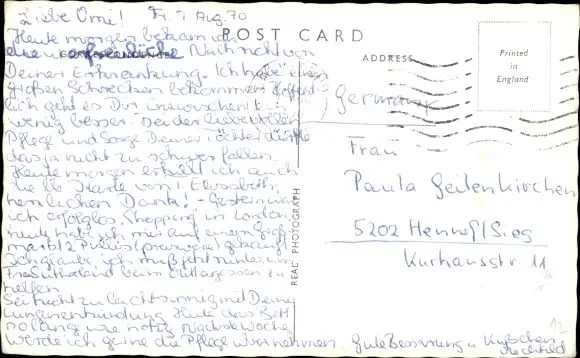 Liebe Omi! Fr. 7 Aug. 70
Heute morgen bekam ich
eine unerfreuliche Nachricht von
Deiner Erkrankung. Ich habe einen
großen Schrecken bekommen. Hoffent-
lich geht es Dir inzwischen
wenig besser. Bei der liebevollen
Pflege und Sorge Deiner Töchter dürfte
das ja nicht zu schwer fallen.
Heute morgen erhielt ich auch
die lb Karte von Elisabeth,
herzlichen Dank! - Gestern war
ich erfolglos Shopping in London
heute hab ich mir auf einem Groß-
markt 2 Pullis (preiswert) gekauft
Ich glaube, ich muß jetzt runter um
Frau Sutherland beim Mittagessen zu
helfen.
Sei nicht zu leichtsinnig mit Deiner
Lungenentzündung. Hüte das Bett
solange wie nötig. Nächste Woche
werde ich gerne die Pflege übernehmen. Gute Besserung u Küßchen
POST CARD
CORRESPONDENCE
ADDRESS
Printed
in
England
REAL PHOTOGRAPH
Germany
Frau
Paula Geilenkirchen
5202 Hennef/Sieg
Kurhausstr 11
12